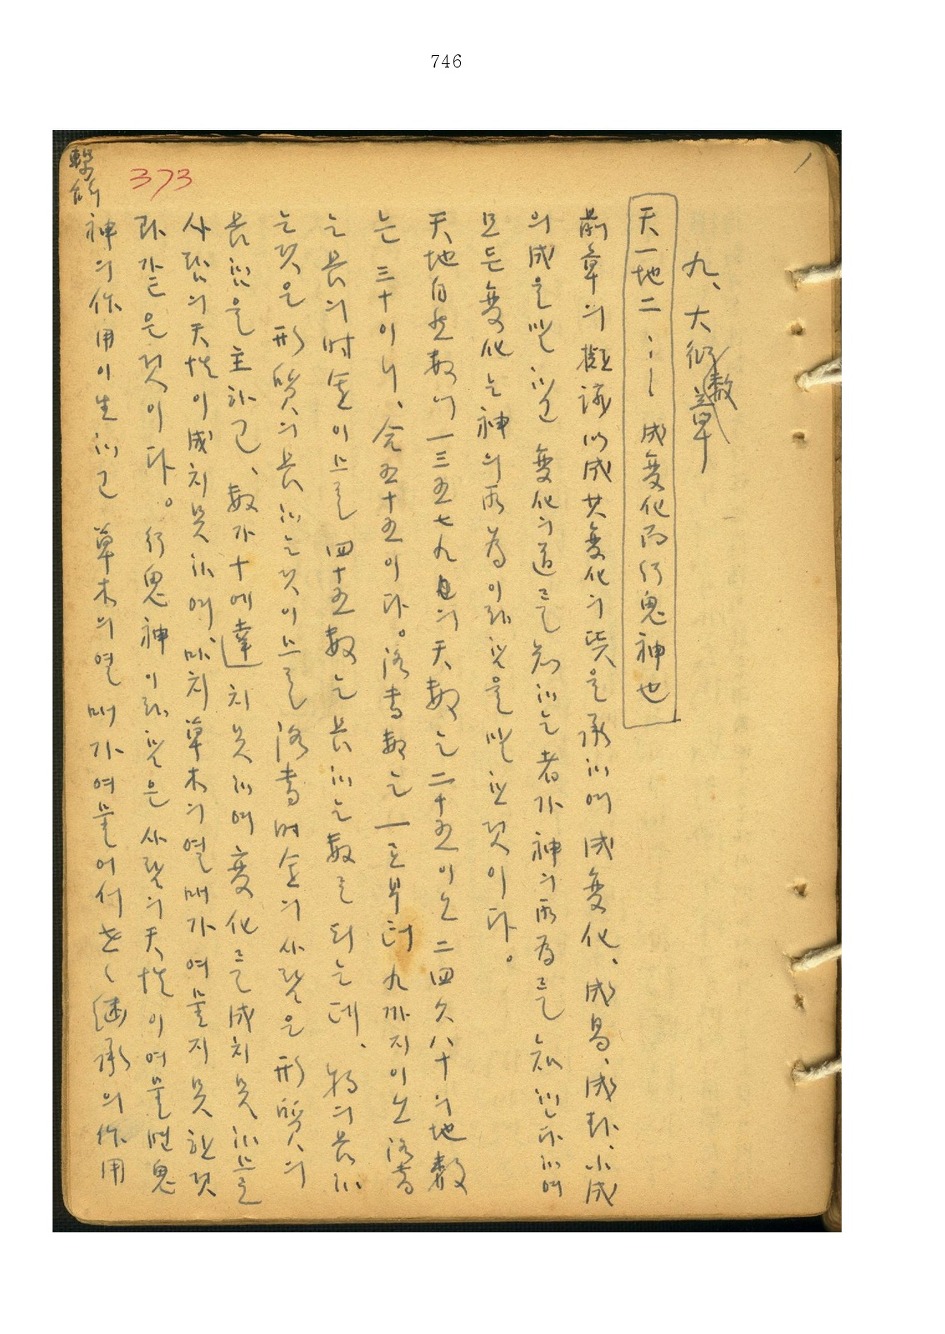 746
373
繫辭
九、大衍數章
天一地二……成變化而行鬼神也
前章의 擬議以成其變化의 뜻을 承하여 成變化、成易、成卦、小成
의 成을 말하고 變化의 道를 知하는 者가 神의 所為를 知한다하여
모든 變化는 神의 所為이라 함을 말한 것이다。
天地自然數에 一三五七九의 天數는 二十五이오 二四六八十의 地數
는 三十이니、合五十五이다。洛書數는 一로부터 九까지이오 洛書
는 長의 時運이므로 四十五數는 長하는 數로 되는데、物의 長하
는 것은 形質의 長하는 것이므로 洛書時運의 사람은 形質의
長함을 主하고、數가 十에 達치 못하여 變化를 成치 못하므로
사람의 天性이 成치 못하며、마치 草木의 열매가 여물지 못한 것
과 같은 것이다。行鬼神이라 함은 사람의 天性이 여물면 鬼
神의 作用이 生하고 草木의 열매가 여물어서 世世繼承의 作用